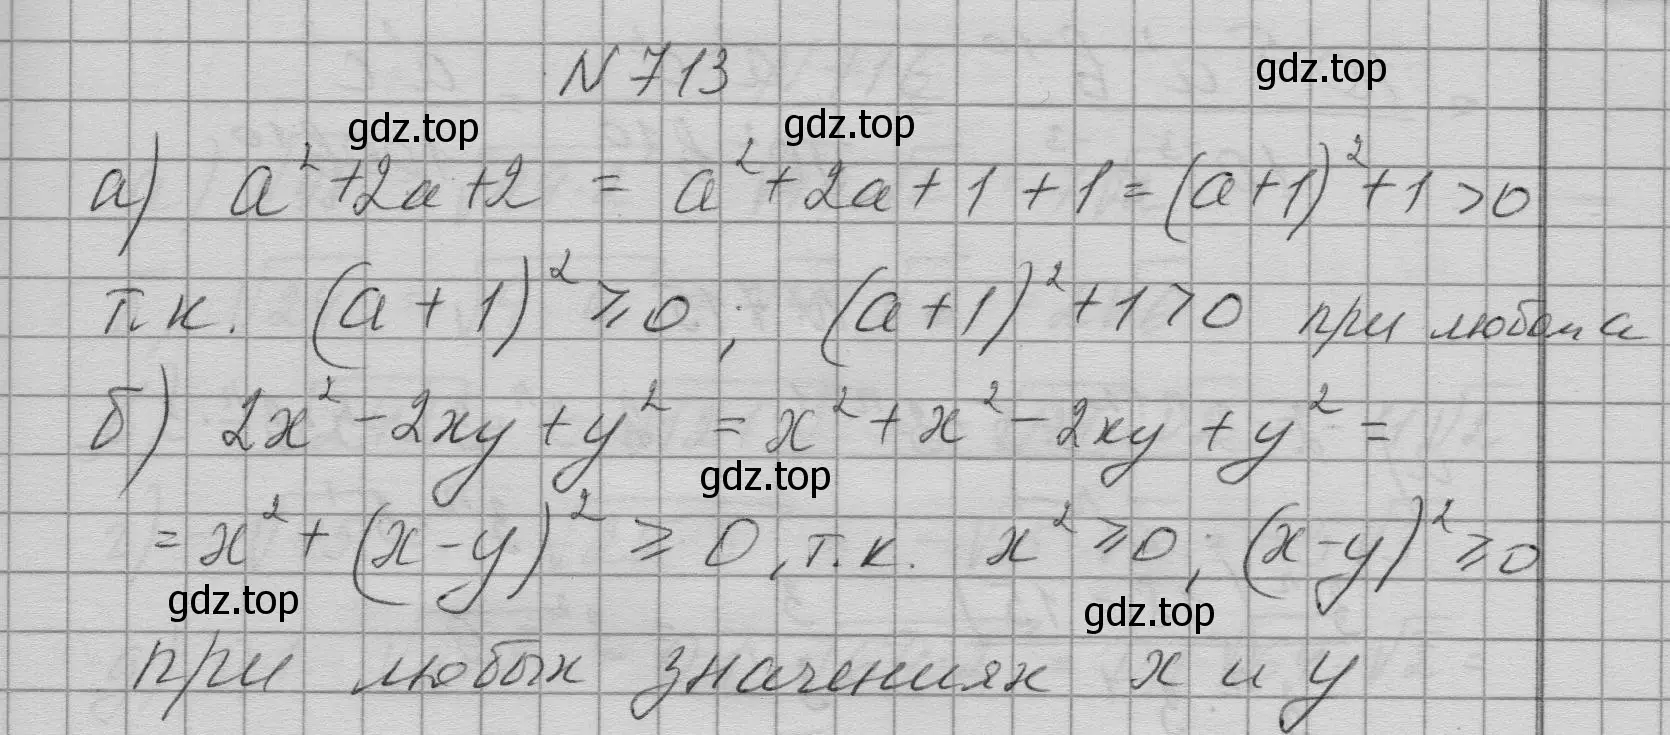 N 713
gdz.top
gdz.top
gdz.top
а) a² + 2a + 2 = a² + 2a + 1 + 1 = (a + 1)² + 1 > 0
т.к. (a + 1)² ⩾ 0 ; (a + 1)² + 1 > 0 при любом a
б) 2x² - 2xy + y² = x² + x² - 2xy + y² =
gdz.top
= x² + (x - y)² ⩾ 0, т.к. x² ⩾ 0 ; (x - y)² ⩾ 0
gdz.top
gdz.top
при любых значениях x и y